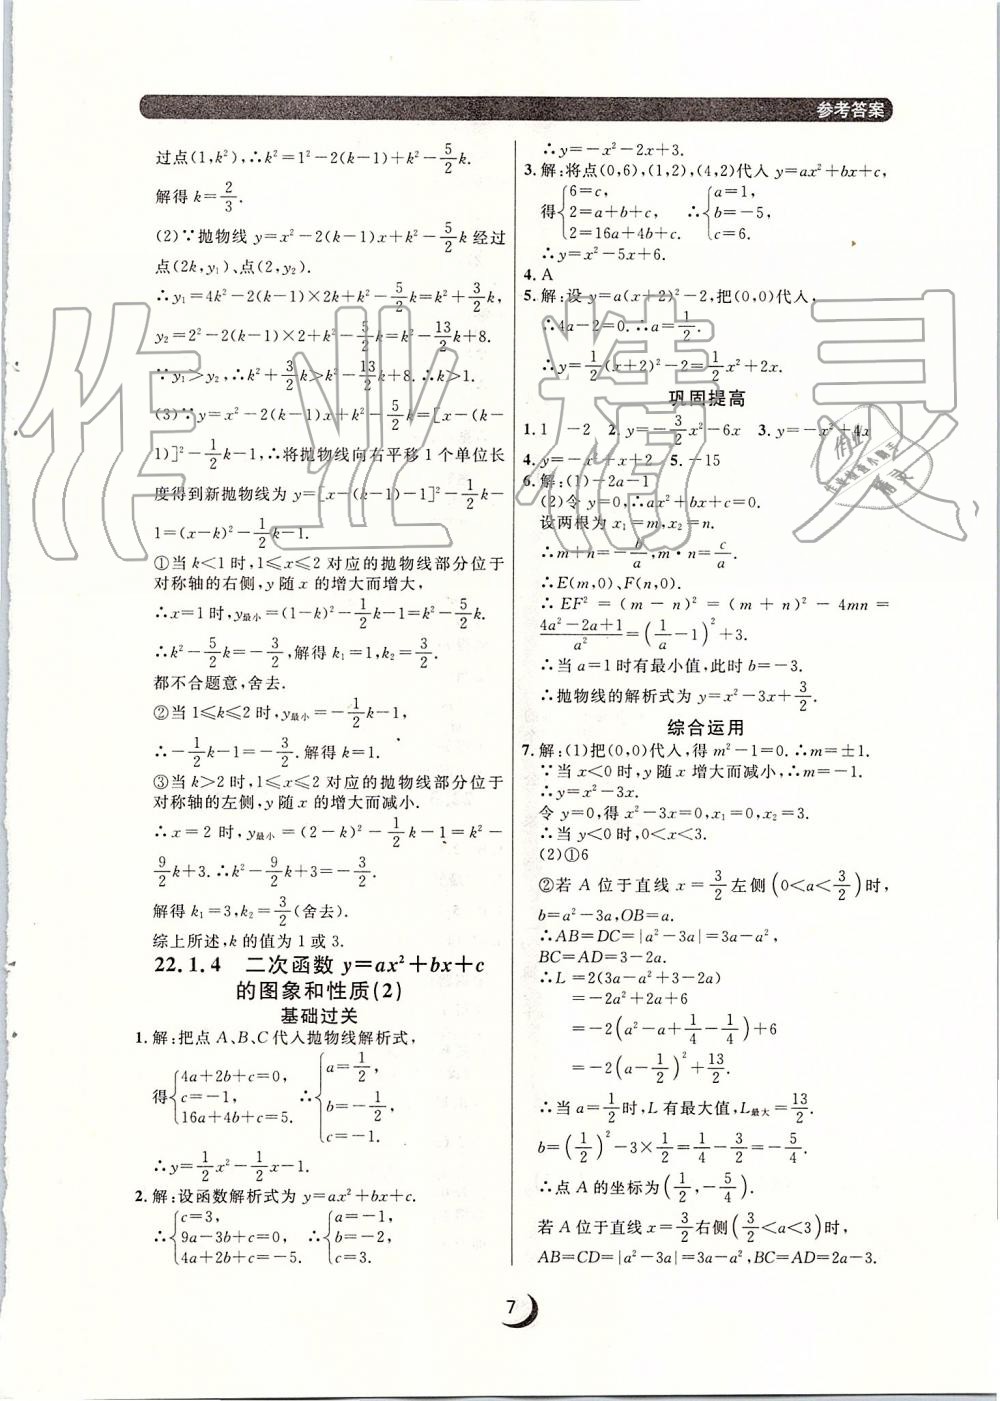 参考答案
过点(1,k²),∴k²=1²-2(k-1)+k²-5/2k.
解得k=2/3.
(2)∵抛物线y=x²-2(k-1)x+k²-5/2k经过
点(2k,y₁)、点(2,y₂).
∴y₁=4k²-2(k-1)×2k+k²-5/2k=k²+3/2k,
y₂=2²-2(k-1)×2+k²-5/2k=k²-13/2k+8.
∵y₁>y₂,∴k²+3/2k>k²-13/2k+8.∴k>1.
(3)∵y=x²-2(k-1)x+k²-5/2k=[x-(k-
1)]²-1/2k-1,∴将抛物线向右平移1个单位长
度得到新抛物线为y=[x-(k-1)-1]²-1/2k-
1=(x-k)²-1/2k-1.
①当k<1时,1≤x≤2对应的抛物线部分位于
对称轴的右侧,y随x的增大而增大,
∴x=1时,y最小=(1-k)²-1/2k-1=k²-5/2k.
∴k²-5/2k=-3/2,解得k₁=1,k₂=3/2.
都不合题意,舍去.
②当1≤k≤2时,y最小=-1/2k-1,
∴-1/2k-1=-3/2.解得k=1.
③当k>2时,1≤x≤2对应的抛物线部分位于
对称轴的左侧,y随x的增大而减小.
∴x=2时,y最小=(2-k)²-1/2k-1=k²-
9/2k+3.∴k²-9/2k+3=-3/2.
解得k₁=3,k₂=3/2(舍去).
综上所述,k的值为1或3.
22.1.4 二次函数y=ax²+bx+c
的图象和性质(2)
基础过关
1.解:把点A、B、C代入抛物线解析式,
得{4a+2b+c=0, c=-1, 16a+4b+c=5. ∴{a=1/2, b=-1/2, c=-1.
∴y=1/2x²-1/2x-1.
2.解:设函数解析式为y=ax²+bx+c.
∴{c=3, 9a-3b+c=0, 4a+2b+c=-5. ∴{a=-1, b=-2, c=3.
∴y=-x²-2x+3.
3.解:将点(0,6),(1,2),(4,2)代入y=ax²+bx+c,
得{6=c, 2=a+b+c, 2=16a+4b+c. ∴{a=1, b=-5, c=6.
∴y=x²-5x+6.
4.A
5.解:设y=a(x+2)²-2,把(0,0)代入,
∴4a-2=0.∴a=1/2.
∴y=1/2(x+2)²-2=1/2x²+2x.
巩固提高
1.1 -2 2.y=-3/2x²-6x 3.y=-x²+4x
4.y=-x²+x+2 5.-15
6.解:(1)-2a-1
(2)令y=0,∴ax²+bx+c=0.
设两根为x₁=m,x₂=n.
∴m+n=-b/a,m·n=c/a.
∴E(m,0),F(n,0).
∴EF²=(m-n)²=(m+n)²-4mn=
4a²-2a+1/a²=(1/a-1)²+3.
∴当a=1时有最小值,此时b=-3.
∴抛物线的解析式为y=x²-3x+3/2.
综合运用
7.解:(1)把(0,0)代入,得m²-1=0.∴m=±1.
∵当x<0时,y随x增大而减小,∴m=-1.
∴y=x²-3x.
令y=0,得x²-3x=0,x₁=0,x₂=3.
∴当y<0时,0<x<3.
(2)①6
②若A位于直线x=3/2左侧(0<a<3/2)时,
b=a²-3a,OB=a.
∴AB=DC=|a²-3a|=3a-a²,
BC=AD=3-2a.
∴L=2(3a-a²+3-2a)
=-2a²+2a+6
=-2(a²-a+1/4-1/4)+6
=-2(a-1/2)²+13/2.
∴当a=1/2时,L有最大值,L最大=13/2.
b=(1/2)²-3×1/2=1/4-3/2=-5/4.
∴点A的坐标为(1/2,-5/4).
若A位于直线x=3/2右侧(3/2<a<3)时,
AB=CD=|a²-3a|=3a-a²,BC=AD=2a-3.
7
作业精灵